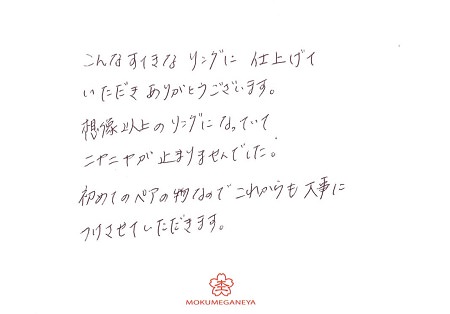 こんなすてきなリングに仕上げて
いただきありがとうございます。
想像以上のリングになっていて
ニヤニヤが止まりませんでした。
初めてのペアの物なのでこれからも大事に
つけさせていただきます。
MOKUMEGANEYA